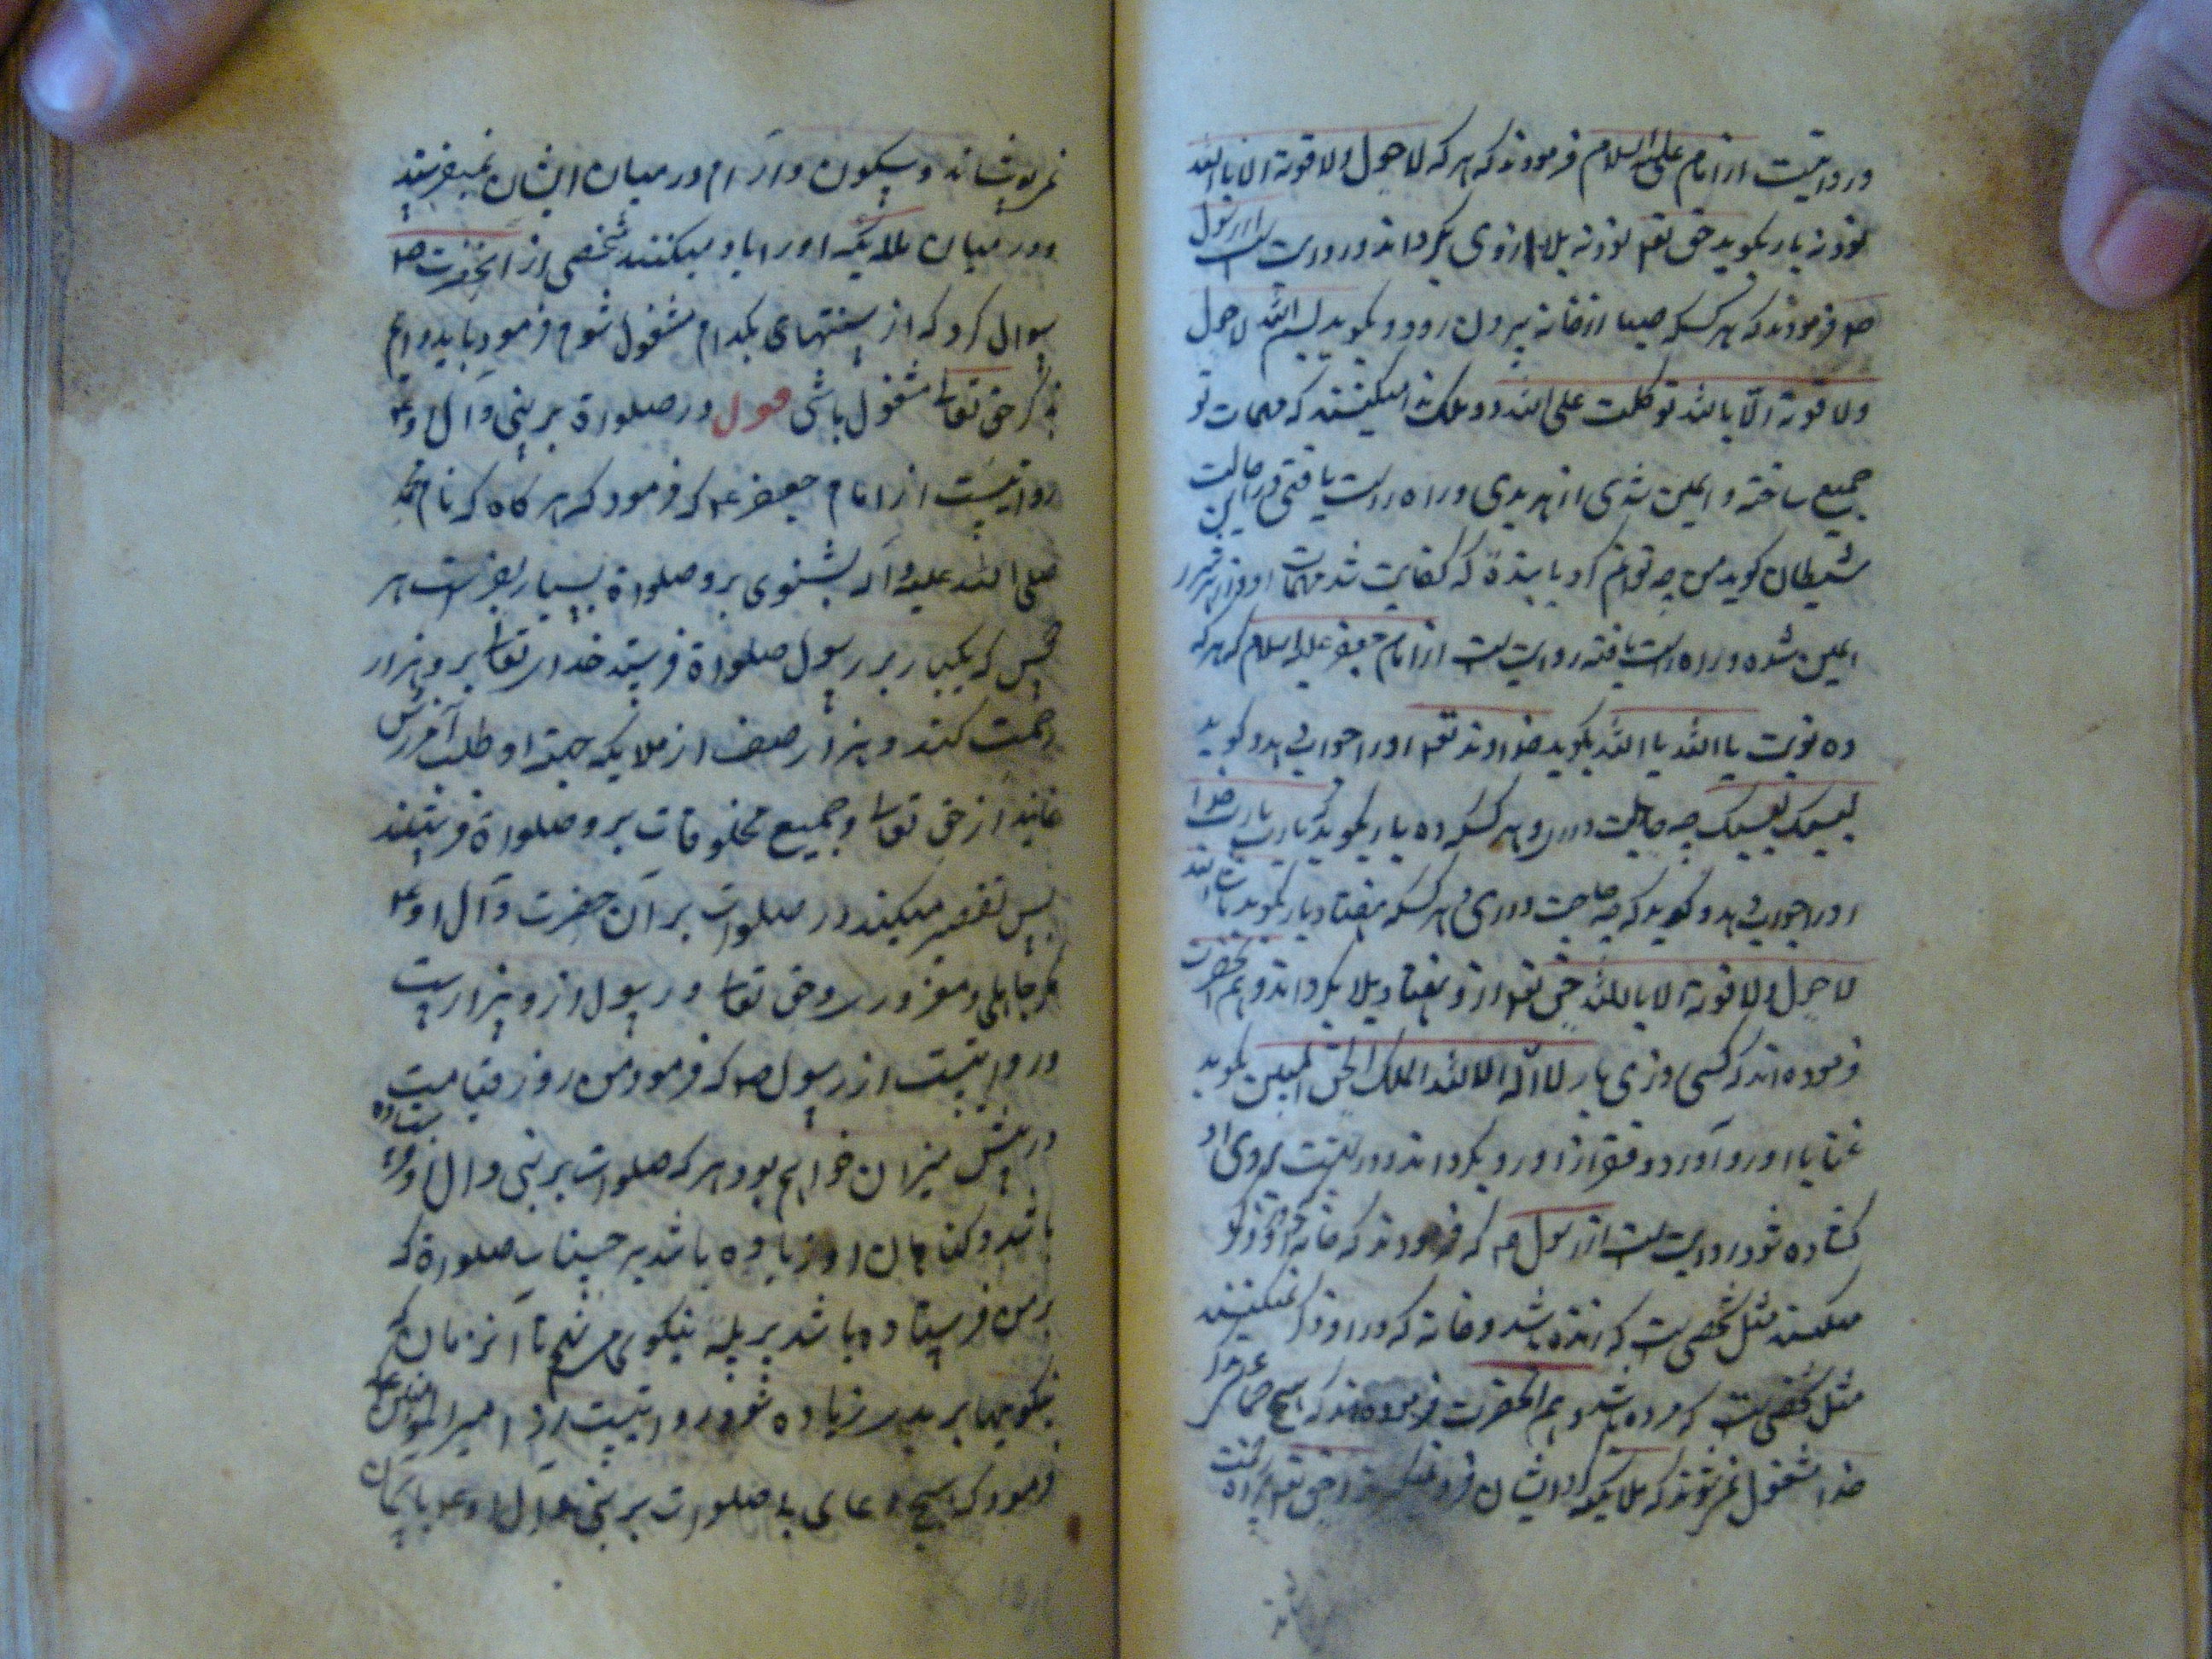 و روایتست از امام علیه السلام فرمودند که هر که لا حول ولا قوة الا بالله
نود نه بار بگوید حق تعـ نود نه بلا از وی بگرداند و روایت است از رسول
صـ فرمودند که هر کسکه صبا از خانه بیرون رود و بگوید بسم الله لا حول
ولا قوة الّا بالله توکلت علی الله دو ملک ندا میکنند که مهمات تو
جمیع ساخته و ایمن شدی از هر بدی و راه راست یافتی در این حالت
شیطان گوید من چه توانم کرد با بندهٔ که کفایت شد مهمات او و از هر ضرر
ایمن شده و راه راست یافته روایت است از امام جعفر علیه السلام که هر که
ده نوبت یا الله یا الله بگوید خداوند تعـ او را جواب دهد و گوید
لبیک لبیک چه حاجت داری و هر کسکه ده بار بگوید یا رب یا رب خدا
او را جواب دهد و گوید که چه حاجت داری و هر کسکه هفتاد بار بگوید ما شا الله
لا حول ولا قوة الا بالله حق تعـ از و هفتاد بلا بگرداند و هم آنحضرت
فرموده اند که کسی روزی بار لا اله الا الله الملک الحق المبین بگوید
غنا با او رو آورد و فقر از او رو بگرداند و در بهشت بروی او
گشاده شود و روایت است از رسول صـ که فرمودند که خانه که در و ذکر
میکنند مثل شخصی است که زنده باشد و خانه که در او ذکر نمیکنند
مثل شخصی است که مرده باشد و هم آنحضرت فرموده اند که هیچ جماعتی بذکر
خدا مشغول نمیشوند که ملایکه گرد ایشان فرو و حق تعـ
نمی پوشاند و سکون و آرام در میان ایشان نمیفرستد
و در میان ملایکه او را یاد میکنند شخصی از آنحضرت صـ
سوال کرد که از سنتهای بکدام مشغول شوم فرمود باید دایم
بذکر حق تعالی مشغول باشی فصل در صلوة بر نبی و آل او عـ
روایتست از امام جعفر عـ که فرمود که هر کاه که نام محمد
صلی الله علیه و آله بشنوی برو صلوة بسیار بفرست هر
کس که یکبار بر رسول صلوة فرستد خدای تعالی برو هزار
رحمت کند و هزار صف از ملایکه جهة او طلب آمرزش
نمایند از حق تعالی و جمیع مخلوقات برو صلوة فرستند
پس تقصیر میکند در صلوات بر آن حضرت و آل او عـ
مگر جاهلی و مغروری و حق تعالی و رسول از و بیزار است
و روایتست از رسول صـ که فرمود من روز قیامت
در پیش میزان خواهم بود هر که صلوات بر نبی و آل او فرستاده
باشد و گناهان او زیاده باشد بر حسنات صلوة که
بر من فرستاده باشد بر پله نیکوی می نهم تا آنزمان که
نیکویها بر بدی زیاده شود و روایتست از امیرالمومنین عـ
فرمود که هیچ دعای بی صلوات بر نبی و آل او عـ باسمان